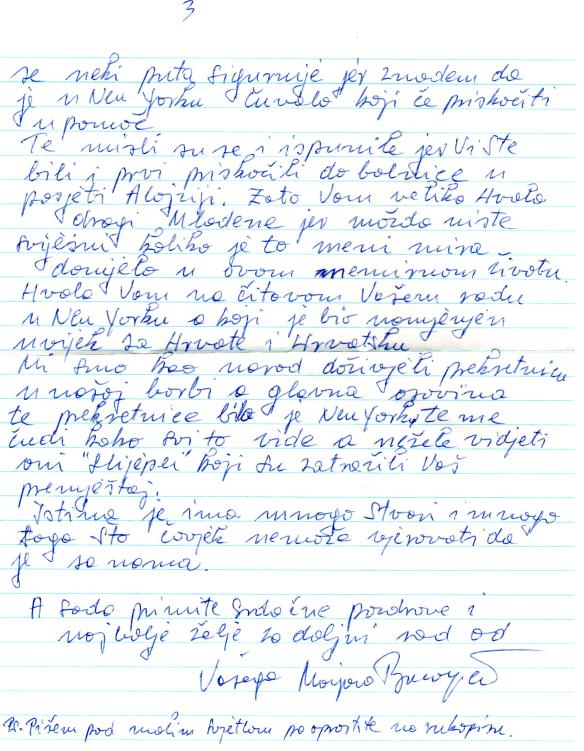 3
se neki puta sigurnije jer znadem da
je u New Yorku Čuvalo koji če priskočiti
u pomoč
Te misli su se i ispunile jer Vi ste
bili i prvi priskočili do bolnice u
posjeti Alojziji. Zato Vam velika Hvala
dragi Mladene jer možda niste
svijesni koliko je to meni mira
donijelo u ovom nemirnom životu.
Hvala Vam na čitavom Vašem radu
u New Yorku a koji je bio namjenjen
uvijek za Hrvate i Hrvatsku
Mi smo kao narod doživjeli prekretnicu
u našoj borbi a glavna osovina
te prekretnice bila je New York, te me
čudi kako svi to vide a nežele vidjeti
oni "slijepci" koji su zatražili Vaš
premještaj.
Istina je, ima mnogo stvari i mnogo
toga što čovjek nemože vjerovati da
je sa nama.
A sada primite srdačne pozdrave i
najbolje želje za daljni rad od
Vašega
Ps. Pišem pod malim svjetlom pa oprostite na rukopisu.